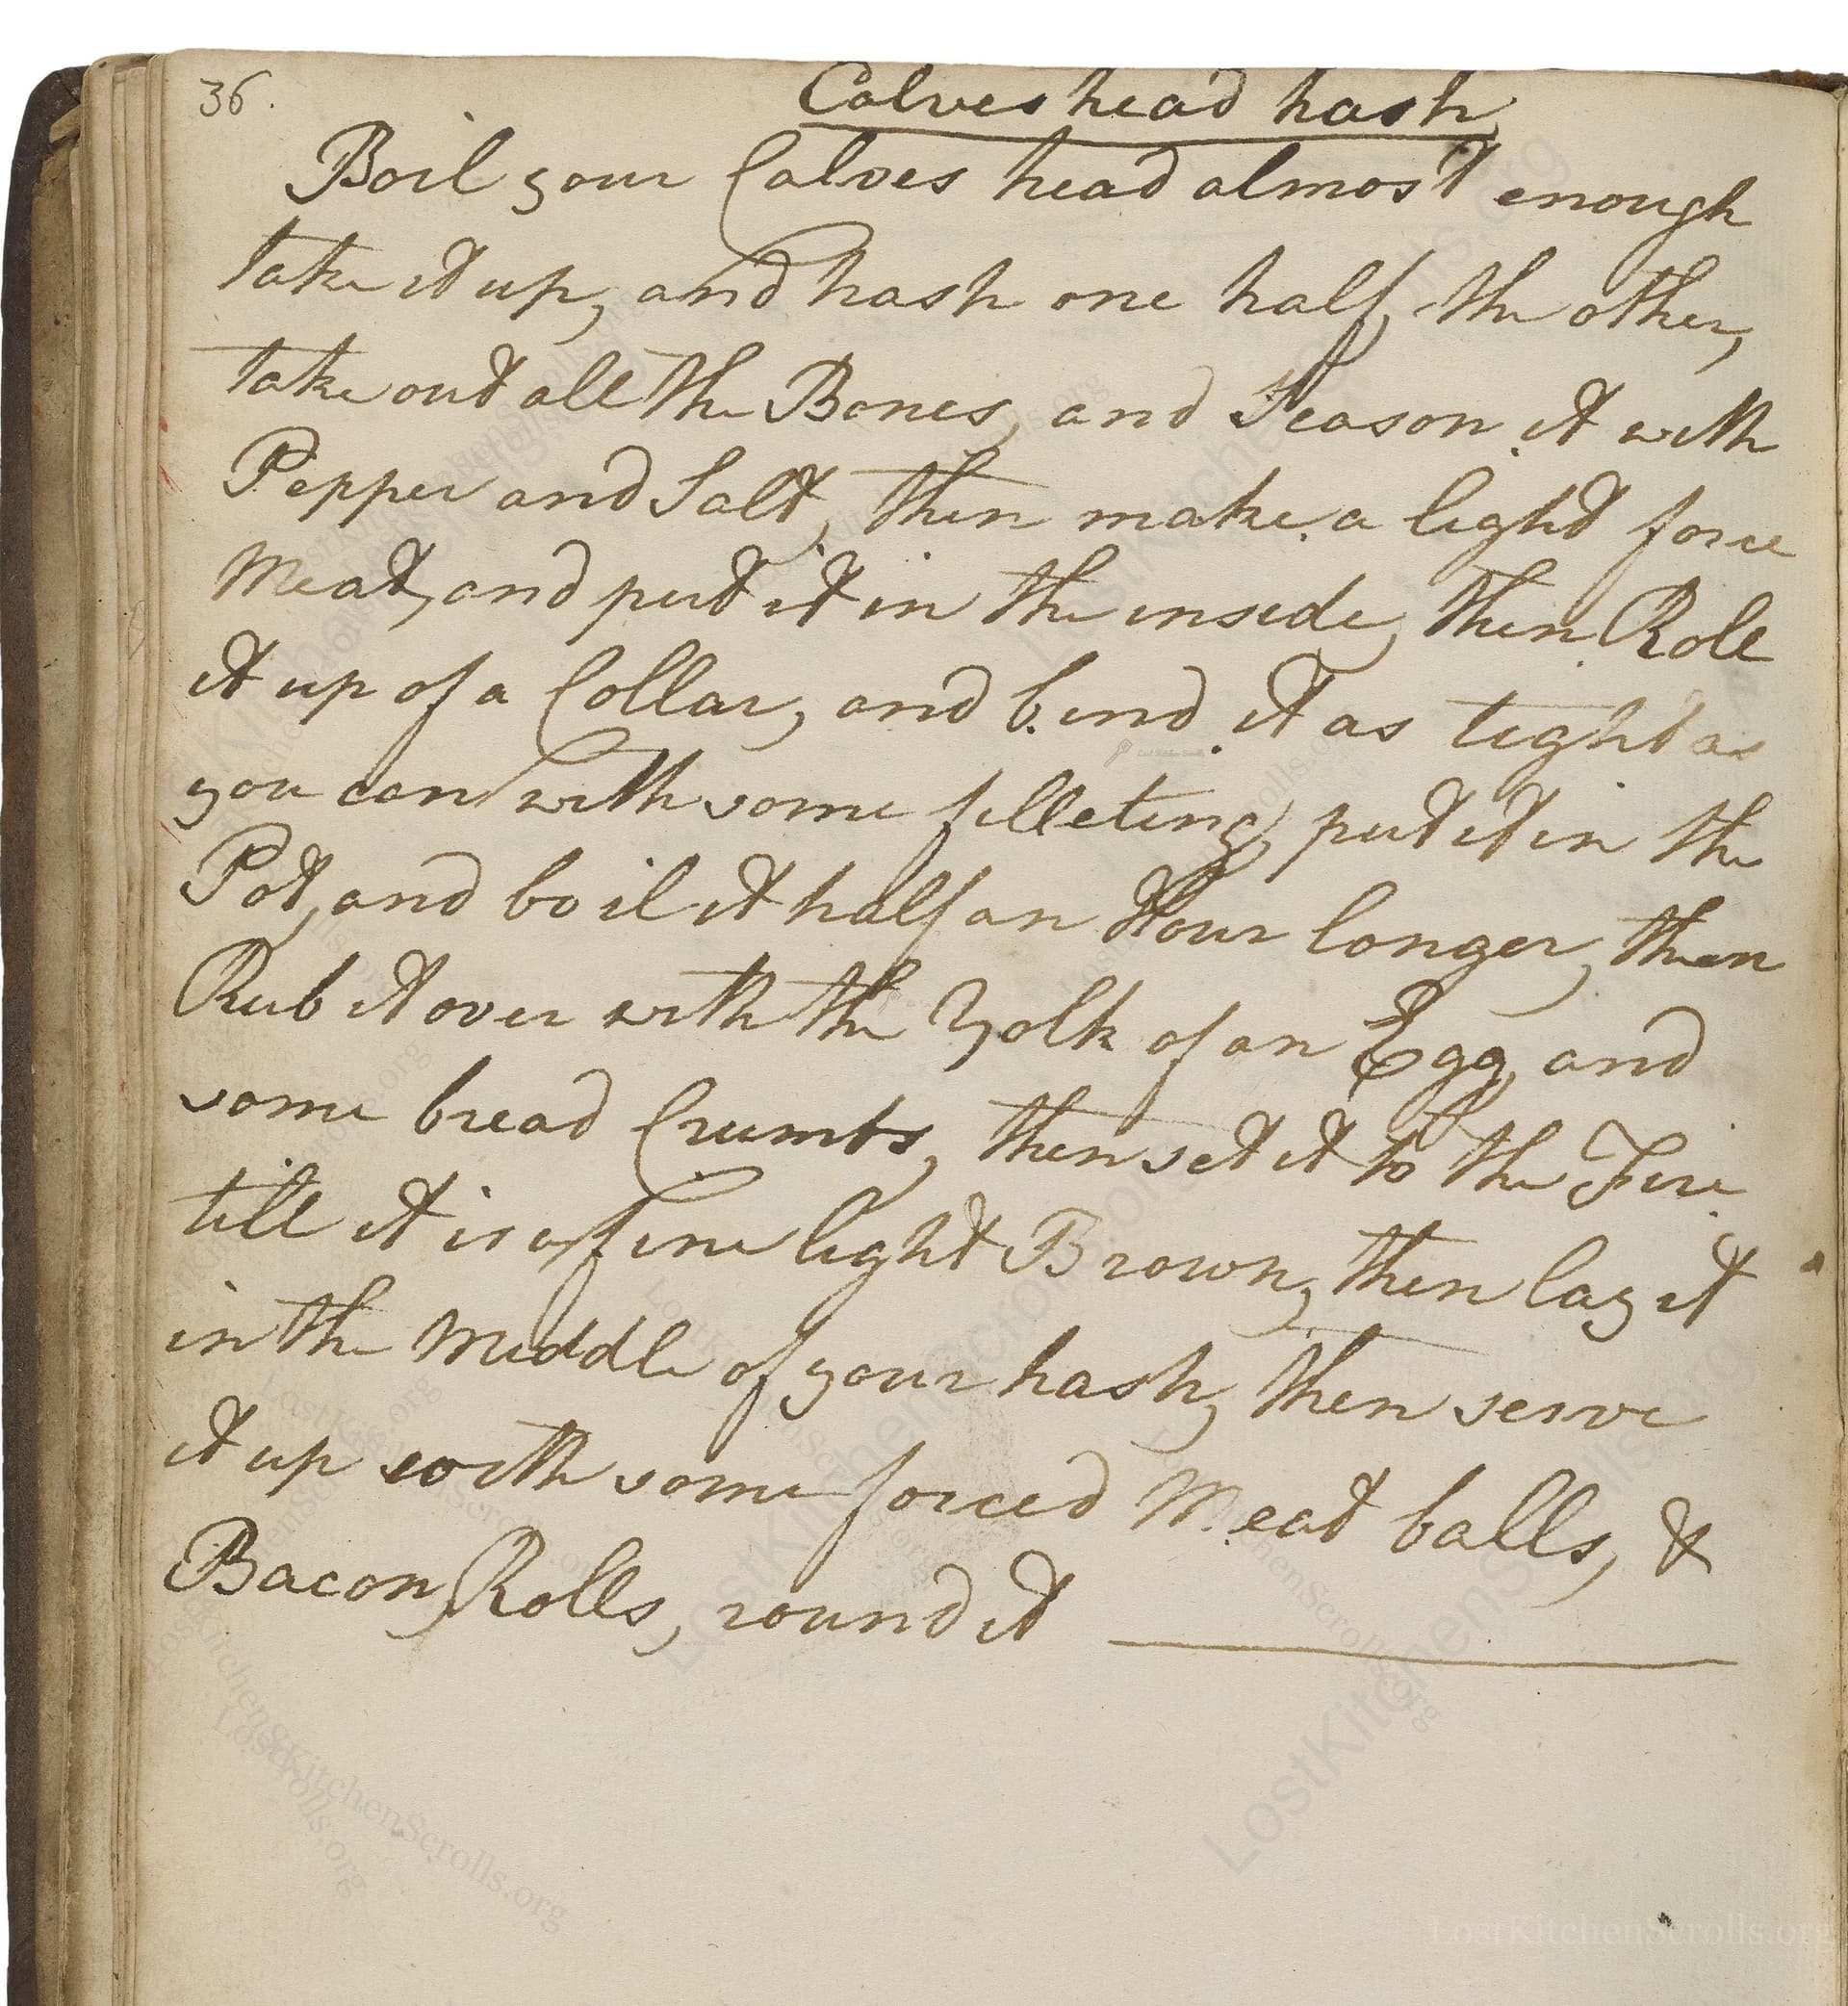 36.
Calves head hash
Boil your Calves head almost enough
take it up, and hash one half, the other,
take out all the Bones, and Season it with
Pepper and Salt, then make a light force
Meat, and put it in the inside, then Role
it up of a Collar, and bind it as tight as
you can with some filleting, put it in the
Pot, and boil it half an Hour longer, then
Rub it over with the Yolk of an Egg, and
some bread Crumbs, then set it to the Fire
till it is of fine light Brown, then lay it
in the Middle of your hash, then serve
it up with some forced Meat balls, &
Bacon Rolls, round it
LostKitchenScrolls.org